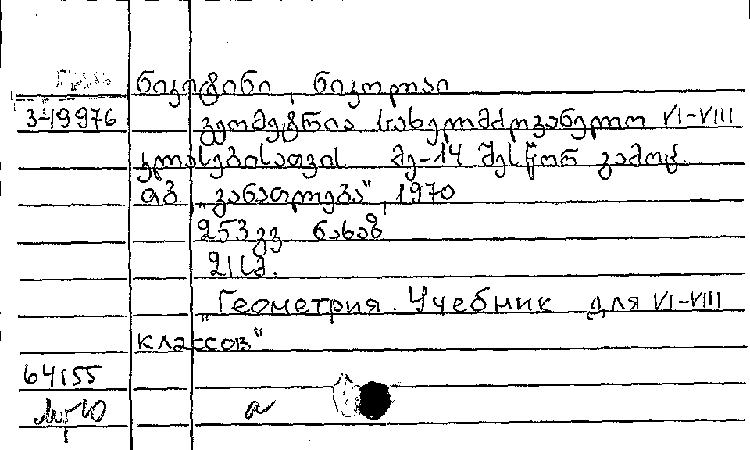 ნიკიტინი, ნიკოლაი
3-19976 გეომეტრია სახელმძღვანელო VI-VIII
კლასებისათვის მე-14 შესწორ გამოც
თბ „განათლება“, 1970
253 გვ ნახაზ
21 სმ.
„Геометрия. Учебник для VI-VIII
классов“
64155
а